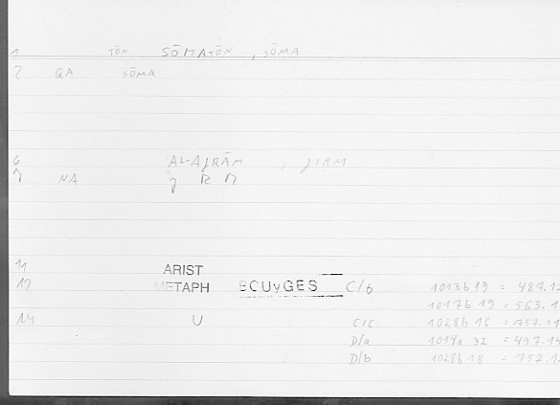 1 TŌN SŌMATŌN , SŌMA
2 QA SŌMA
6 AL-AǧRĀM , ǧIRM
7 NA ǧ R M
11 ARIST
12 METAPH BOUYGES C/b 1013b19 = 487.12
1017b 19 = 563.1
14 U C/c 1028b 16 = 757.11
D/a 1014a 32 = 497.14
D/b 1028b 18 = 757.1